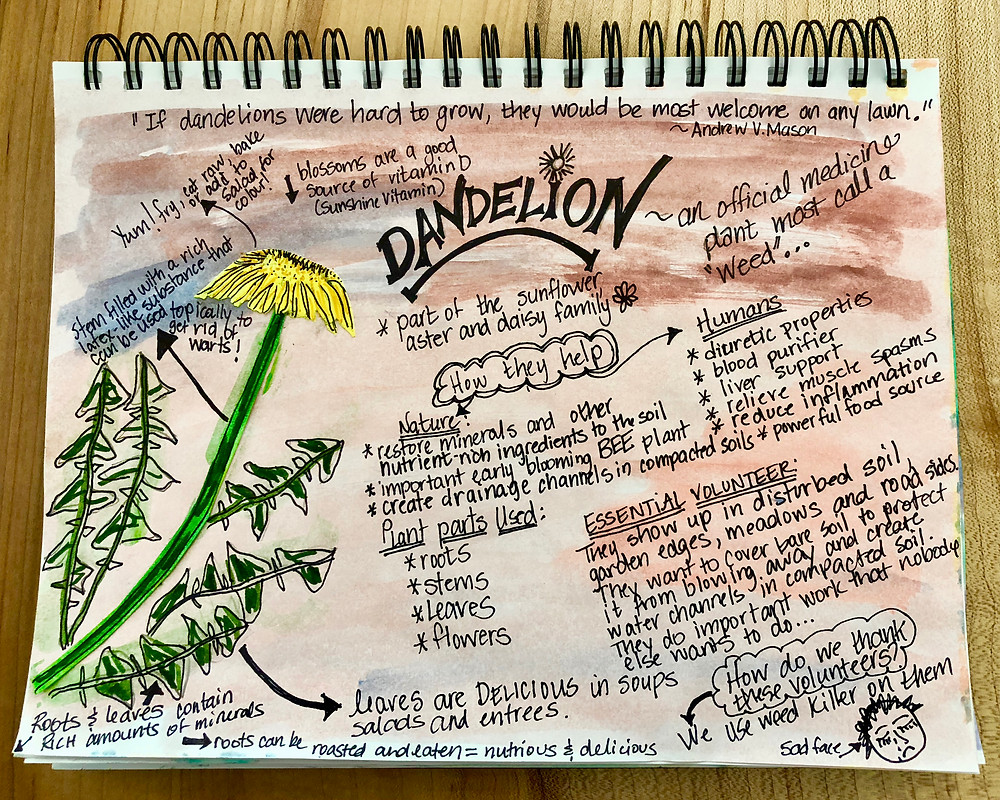 "If dandelions were hard to grow, they would be most welcome on any lawn."
~ Andrew V. Mason
Yum! fry, eat raw, bake
or add to
salad for
colour!
blossoms are a good
source of vitamin D
(sunshine vitamin)
DANDELION
~ an official medicine
plant most call a
"weed"...
stem filled with a rich
latex-like substance that
can be used topically to
get rid of
warts!
* part of the sunflower,
aster and daisy family
How they help
Nature:
* restore minerals and other
nutrient-rich ingredients to the soil
* important early blooming BEE plant
* create drainage channels in compacted soils
Humans
* diuretic properties
* blood purifier
* liver support
* relieve muscle spasms
* reduce inflammation
* powerful food source
Plant parts Used:
* roots
* stems
* Leaves
* flowers
ESSENTIAL VOLUNTEER:
They show up in disturbed soil,
garden edges, meadows and road sides.
They want to cover bare soil to protect
it from blowing away and create
water channels in compacted soil.
They do important work that nobody
else wants to do...
How do we thank
these volunteers?
We use weed killer on them
Sad face
leaves are DELICIOUS in soups
salads and entrees.
Roots & leaves contain
RICH amounts of minerals
roots can be roasted and eaten = nutrious & delicious